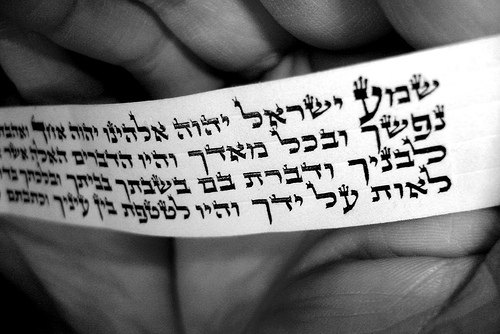 שמע ישראל יהוה אלהינו יהוה אחד ואהבת
נפשך ובכל מאדך והיו הדברים האלה אשר
לבניך ודברת בם בשבתך בביתך ובלכתך
לאות על ידך והיו לטטפת בין עיניך וכתבתם